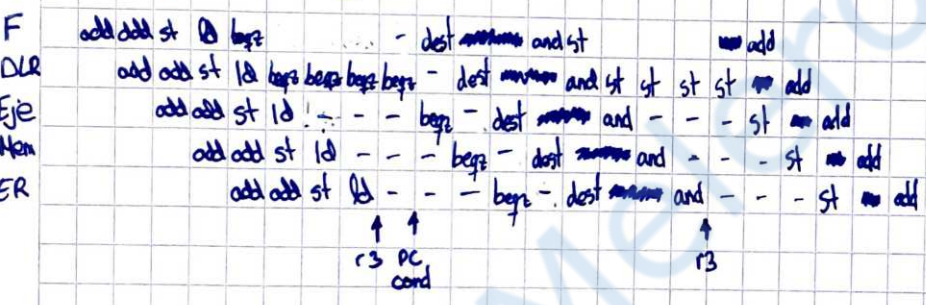 F add add st ld beqz .... - dest and st add
DLR add add st ld beqz beqz beqz beqz - dest and st st st st add
Eje add add st ld - - - beqz - dest and - - - st add
Mem add add st ld - - - beqz - dest and - - - st add
ER add add st ld - - - beqz - dest and - - - st add
r3 PC r3
cond